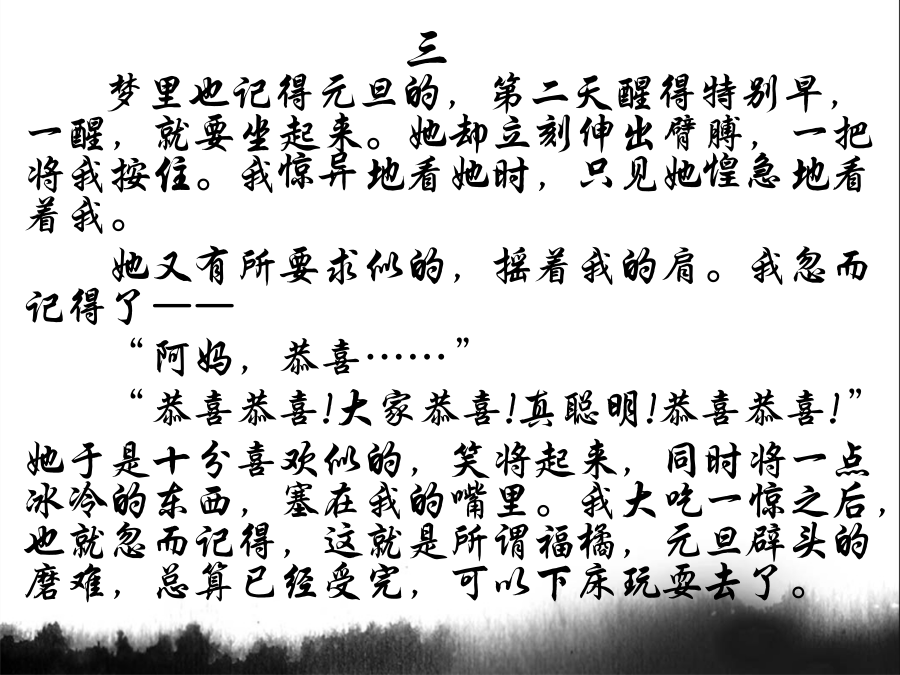 三
梦里也记得元旦的，第二天醒得特别早，
一醒，就要坐起来。她却立刻伸出臂膊，一把
将我按住。我惊异地看她时，只见她惶急地看
着我。
她又有所要求似的，摇着我的肩。我忽而
记得了——
“阿妈，恭喜……”
“恭喜恭喜!大家恭喜!真聪明!恭喜恭喜!”
她于是十分喜欢似的，笑将起来，同时将一点
冰冷的东西，塞在我的嘴里。我大吃一惊之后，
也就忽而记得，这就是所谓福橘，元旦辟头的
磨难，总算已经受完，可以下床玩耍去了。